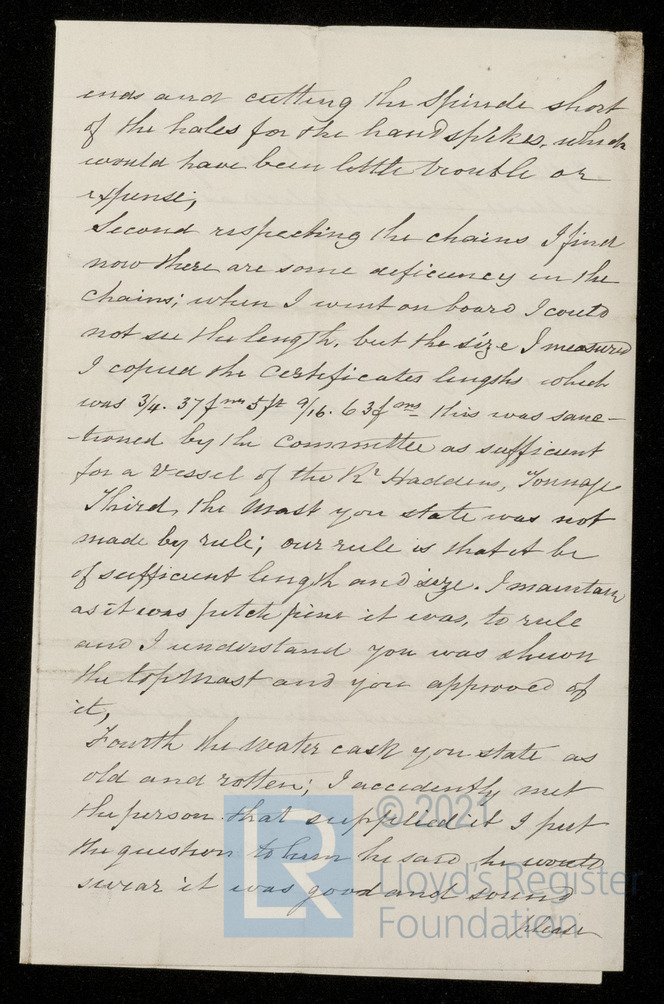 ends and cutting the Spindle short
of the holes for the handspikes, which
would have been little trouble or
expense,
Second respecting the chains I find
now there are some deficiency in the
chains; when I went on board I could
not see the length, but the size I measured
I copied the Certificates lengths which
was 3/4. 37 fms 5 ft 9/16. 63 fms this was sanc-
tioned by the Committee as sufficient
for a Vessel of the Haddens, Tonnage
Third, the Mast you state was not
made by rule; our rule is that it be
of sufficient length and size. I maintain
as it was pitch pine it was, to rule
and I understand you was shewn
the topmast and you approved of
it,
Fourth the Water cask you state as
old and rotten; I accidently met
the person that supplied it I put
the question to him he said, he would
swear it was good and sound
please
LR
© 2021
Lloyd's Register
Foundation